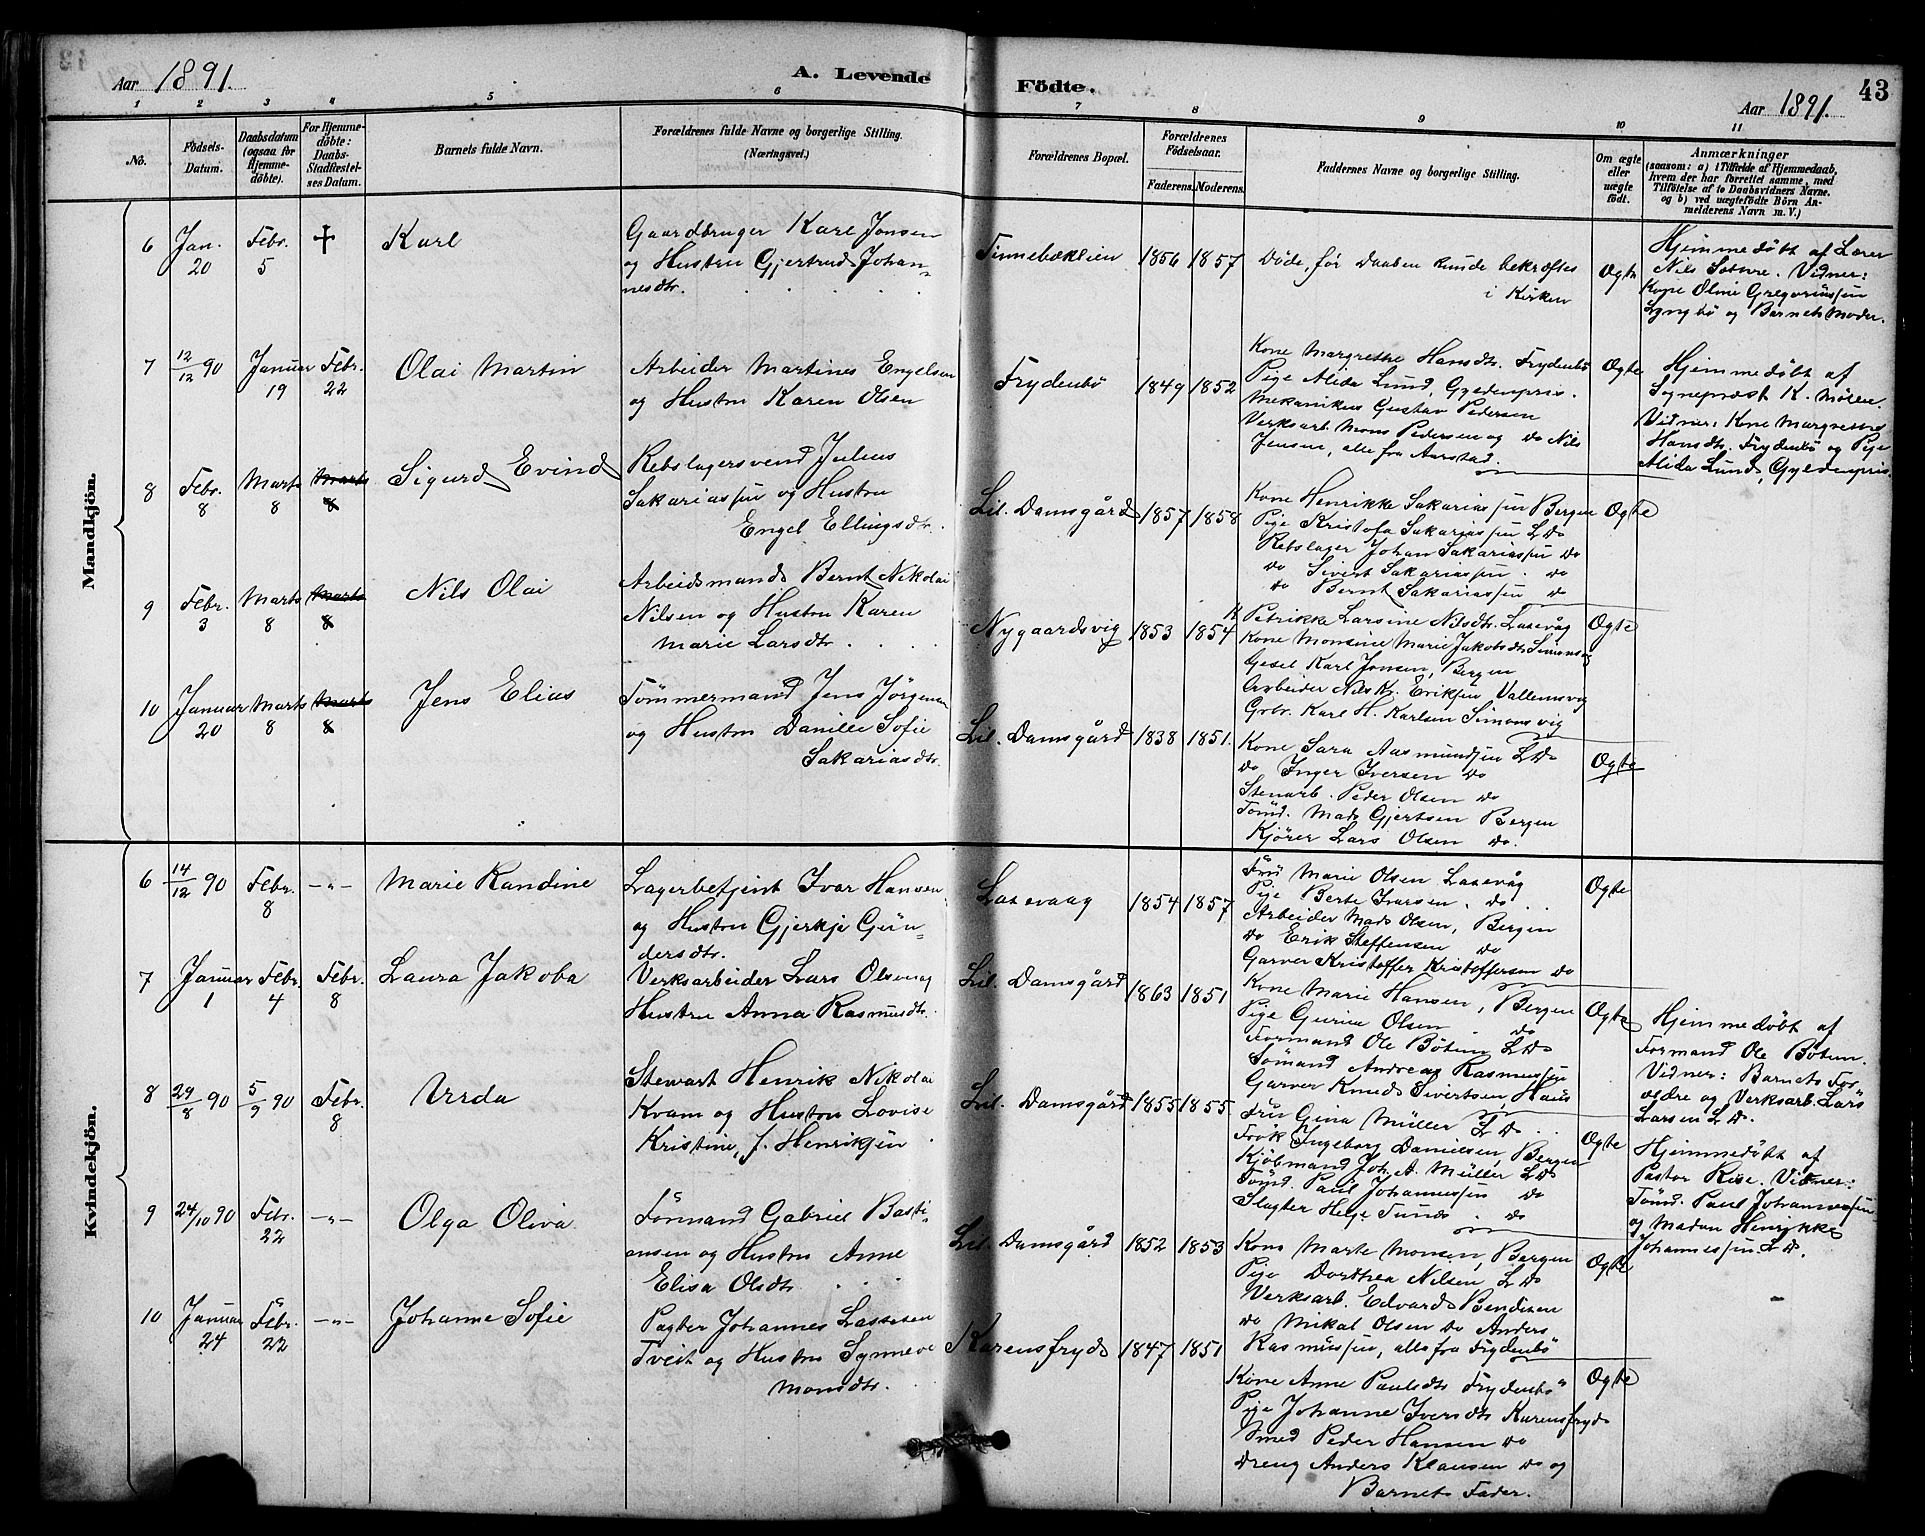 Aar 1891.
A. Levende Födte.
Aar 1891.
43
1 2 3 4 5 6 7 8 9 10 11
No.
Födsels-
Datum.
Daabsdatum
(ogsaa for
Hjemme-
döbte).
For Hjemme-
döbte:
Daabs-
Stadfæstel-
ses Datum.
Barnets fulde Navn.
Forældrenes fulde Navne og borgerlige Stilling.
(Næringsvei.)
Forældrenes Bopæl.
Forældrenes
Födselsaar.
Faderens. Moderens.
Faddernes Navne og borgerlige Stilling.
Om ægte
eller
uægte
født.
Anmærkninger
(saasom: a) i Tilfælde af Hjemmedaab,
hvem der har forrettet samme, med
Tilföielse af to Daabsvidners Navne.
og b) ved uægtefödte Börn An-
melderens Navn m. V.)
Mandkjön.
6
Jan.
20
Febr.
5
+
Karl
Gaardbruger Karl Jonsen
og Hustru Gjertrud Johan-
nesdtr.
Finnebækleien
1856 1857
Döde, før Daaben kunde bekræftes
i Kirken
Ægte
Hjemmedøbt af Lærer
Nils Sotnre. Vidner:
Kone Oline Gregoriussen
Lyngbö og Barnets Moder.
7
12/12 90
Januar
19
Febr.
22
Olai Martin
Arbeider Martines Engelsen
og Hustru Karen Olsen
Frydenbö
1849 1852
Kone Margrethe Hansdtr. Frydenbö
Pige Alida Lund, Gyldenpris.
Mekanikus Gustav Pedersen
Verksarb. Mons Pedersen og do Nils
Jensen, alle fra Aarstad.
Ægte
Hjemmedøbt af
Sogneprest K. Möller.
Vidner: Kone Margrethe
Hansdtr. Frydenbö og Pige
Alida Lund, Gyldenpris.
8
Febr.
8
Marts
8
Marts
8
Sigurd Evind
Rebslagersvend Julius
Sakariassen og Hustru
Engel Ellingsdtr.
Lil. Damsgård
1857 1858
Kone Henrikke Sakariassen Bergen
Pige Kristofa Sakariassen L D.
Rebslager Johan Sakariassen do
do Sivert Sakariassen do
do Bernt Sakariassen do
Ægte
9
Febr.
3
Marts
8
Marts
8
Nils Olai
Arbeidsmand Bernt Nikolai
Nilsen og Hustru Karen
Marie Larsdtr.
Nygaardsvig
1853 1854
K. Petrikke Larsine Nilsdtr. Laxevåg
Kone Monsine Marie Jakobsdtr Simonsvig
Gesel Karl Jonsen, Bergen
Arbeider Nils Kr. Eriksen Vallemsvig
Grbr. Karl H. Karlsen Simonsvig
Ægte
10
Januar
20
Marts
8
Marts
8
Jens Elias
Tömmermand Jens Jörgensen
og Hustru Danille Sofie
Sakariasdtr.
Lil. Damsgård
1838 1851.
Kone Sara Aasmundsen L D.
do Inger Iversen do
Stenarb. Peder Olsen do
Tömd. Mads Gjertsen Bergen
Kjører Lars Olsen do.
Ægte
Kvindekjön.
6
14/12 90
Febr.
8
-"-
Marie Randine
Lagerbetjent Ivar Hansen
og Hustru Gjerkje Gun-
dersdtr.
Laxevaag
1854 1857
Fru Marie Olsen Laxevåg
Pige Berte Iversen. do
Arbeider Mads Olsen, Bergen
do Erik Steffensen do
Garver Kristoffer Kristoffersen do
Ægte
7
Januar
1
Febr.
4
Febr.
8
Laura Jakoba
Verksarbeider Lars Olsen og
Hustru Anna Rasmusdtr.
Lil. Damsgård
1863 1851
Kone Marie Hansen, Bergen
Pige Gurine Olsen do
Formand Ole Bötun L D.
Sömand Andreas Rasmussen
Garver Knud Sivertsen Haus
Ægte
Hjemmedøbt af
Formand Ole Bötun.
Vidner: Barnets For-
ældre og Verksarb. Lars
Larsen L D.
8
29/8 90
5/9 90
Febr.
8
Varda
Stewart Henrik Nikolai
Kvam og Hustru Lovise
Kristine, f. Henriksen
Lil. Damsgård
1855 1855
Fru Gina Müller L D.
Frök Ingeborg Danielsen, Bergen
Kjöbmand Joh. A. Müller L D.
Tömd. Paul Johannessen do
Slagter Helge Tunes do
Ægte
Hjemmedøbt af
Pastor Rise. Vidner:
Tömd. Paul Johannessen
og Madam Henrikke
Johannessen L D.
9
24/10 90
Febr.
22
-"-
Olga Oliva
Formand Gabriel Basti-
ansen og Hustru Anne
Elisa Olsdtr.
Lil. Damsgård
1852 1853
Kone Marte Monsen, Bergen
Pige Dorthea Nilsen L D.
Verksarb. Edvard Benditsen
do Mikal Olsen do Anders
Rasmussen, alle fra Frydenbö
Ægte
10
Januar
24
Febr.
22
-"-
Johanne Sofie
Pagter Johannes Lassesen
Tveit og Hustru Synneve
Monsdtr.
Karensfryd
1847 1851
Kone Anne Paulsdtr Frydenbö
Pige Johanne Iversdtr Karensfryd
Smed Peder Hansen do
Dreng Anders Klausen do og
Barnets Fader.
Ægte